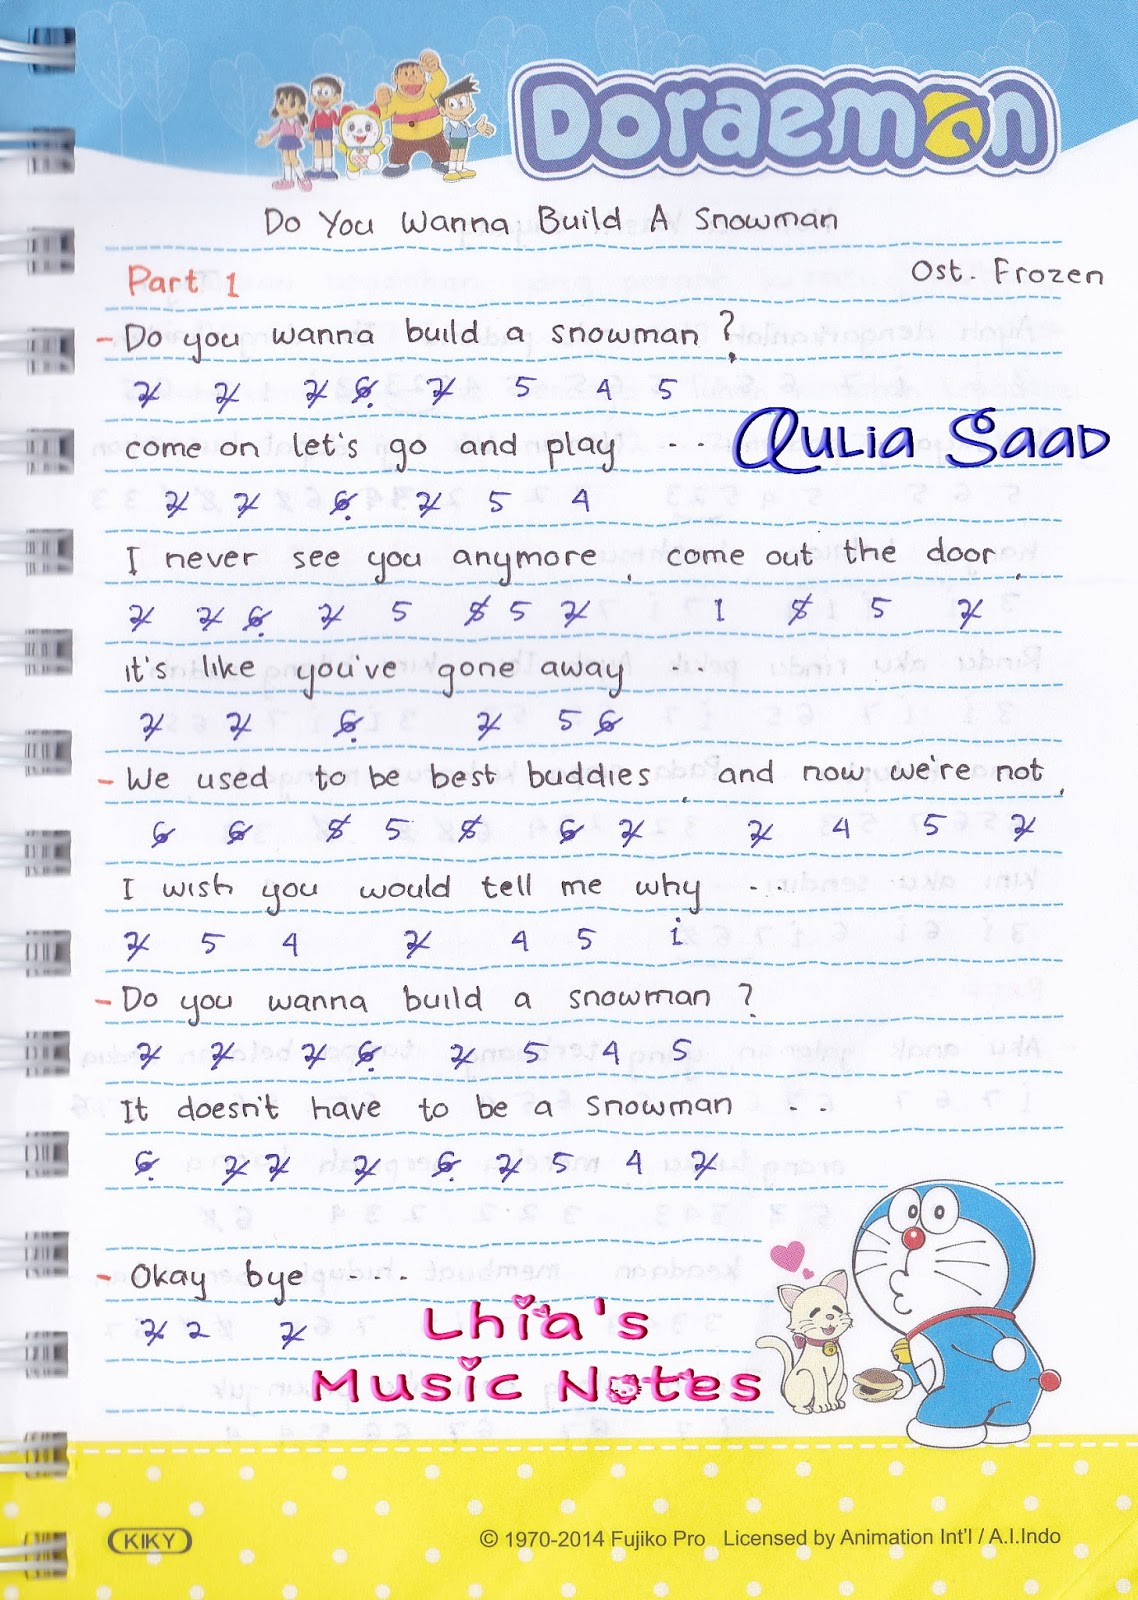 Doraemon
Do You Wanna Build A Snowman
Part 1
Ost. Frozen
- Do you wanna build a snowman ?
2̸ 2̸ 2̸ 6̸̣ 2̸ 5 4 5
come on let's go and play - - -
Aulia Saad
2̸ 2̸ 6̸̣ 2̸ 5 4
I never see you anymore , come out the door ,
2̸ 2̸ 6̸̣ 2̸ 5 5̸ 5 2̸ 1 5̸ 5 2̸
it's like you've gone away - - -
2̸ 2̸ 6̸̣ 2̸ 5 6̸
- We used to be best buddies , and now we're not ,
6̸ 6̸ 5̸ 5 5̸ 6̸ 2̸ 2̸ 4 5 2̸
I wish you would tell me why - - -
2̸ 5 4 2̸ 4 5 i
- Do you wanna build a snowman ?
2̸ 2̸ 2̸ 6̸̣ 2̸ 5 4 5
It doesn't have to be a snowman - -
6̸̣ 2̸ 2̸ 2̸ 6̸̣ 2̸ 5 4 2̸
- Okay bye - - - -
2̸ 2 2̸
Lhia's
Music Notes
KIKY
© 1970-2014 Fujiko Pro Licensed by Animation Int'l / A.I.Indo